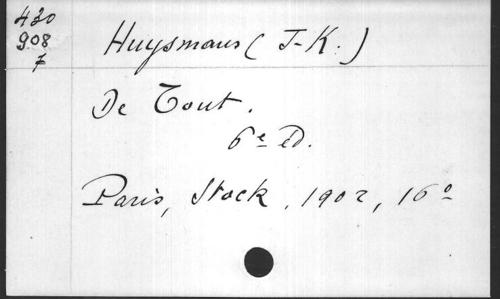 430
908
7
Huysmans (J-K.)
De Tout.
6e Ed.
Paris, Stock, 1902, 16o